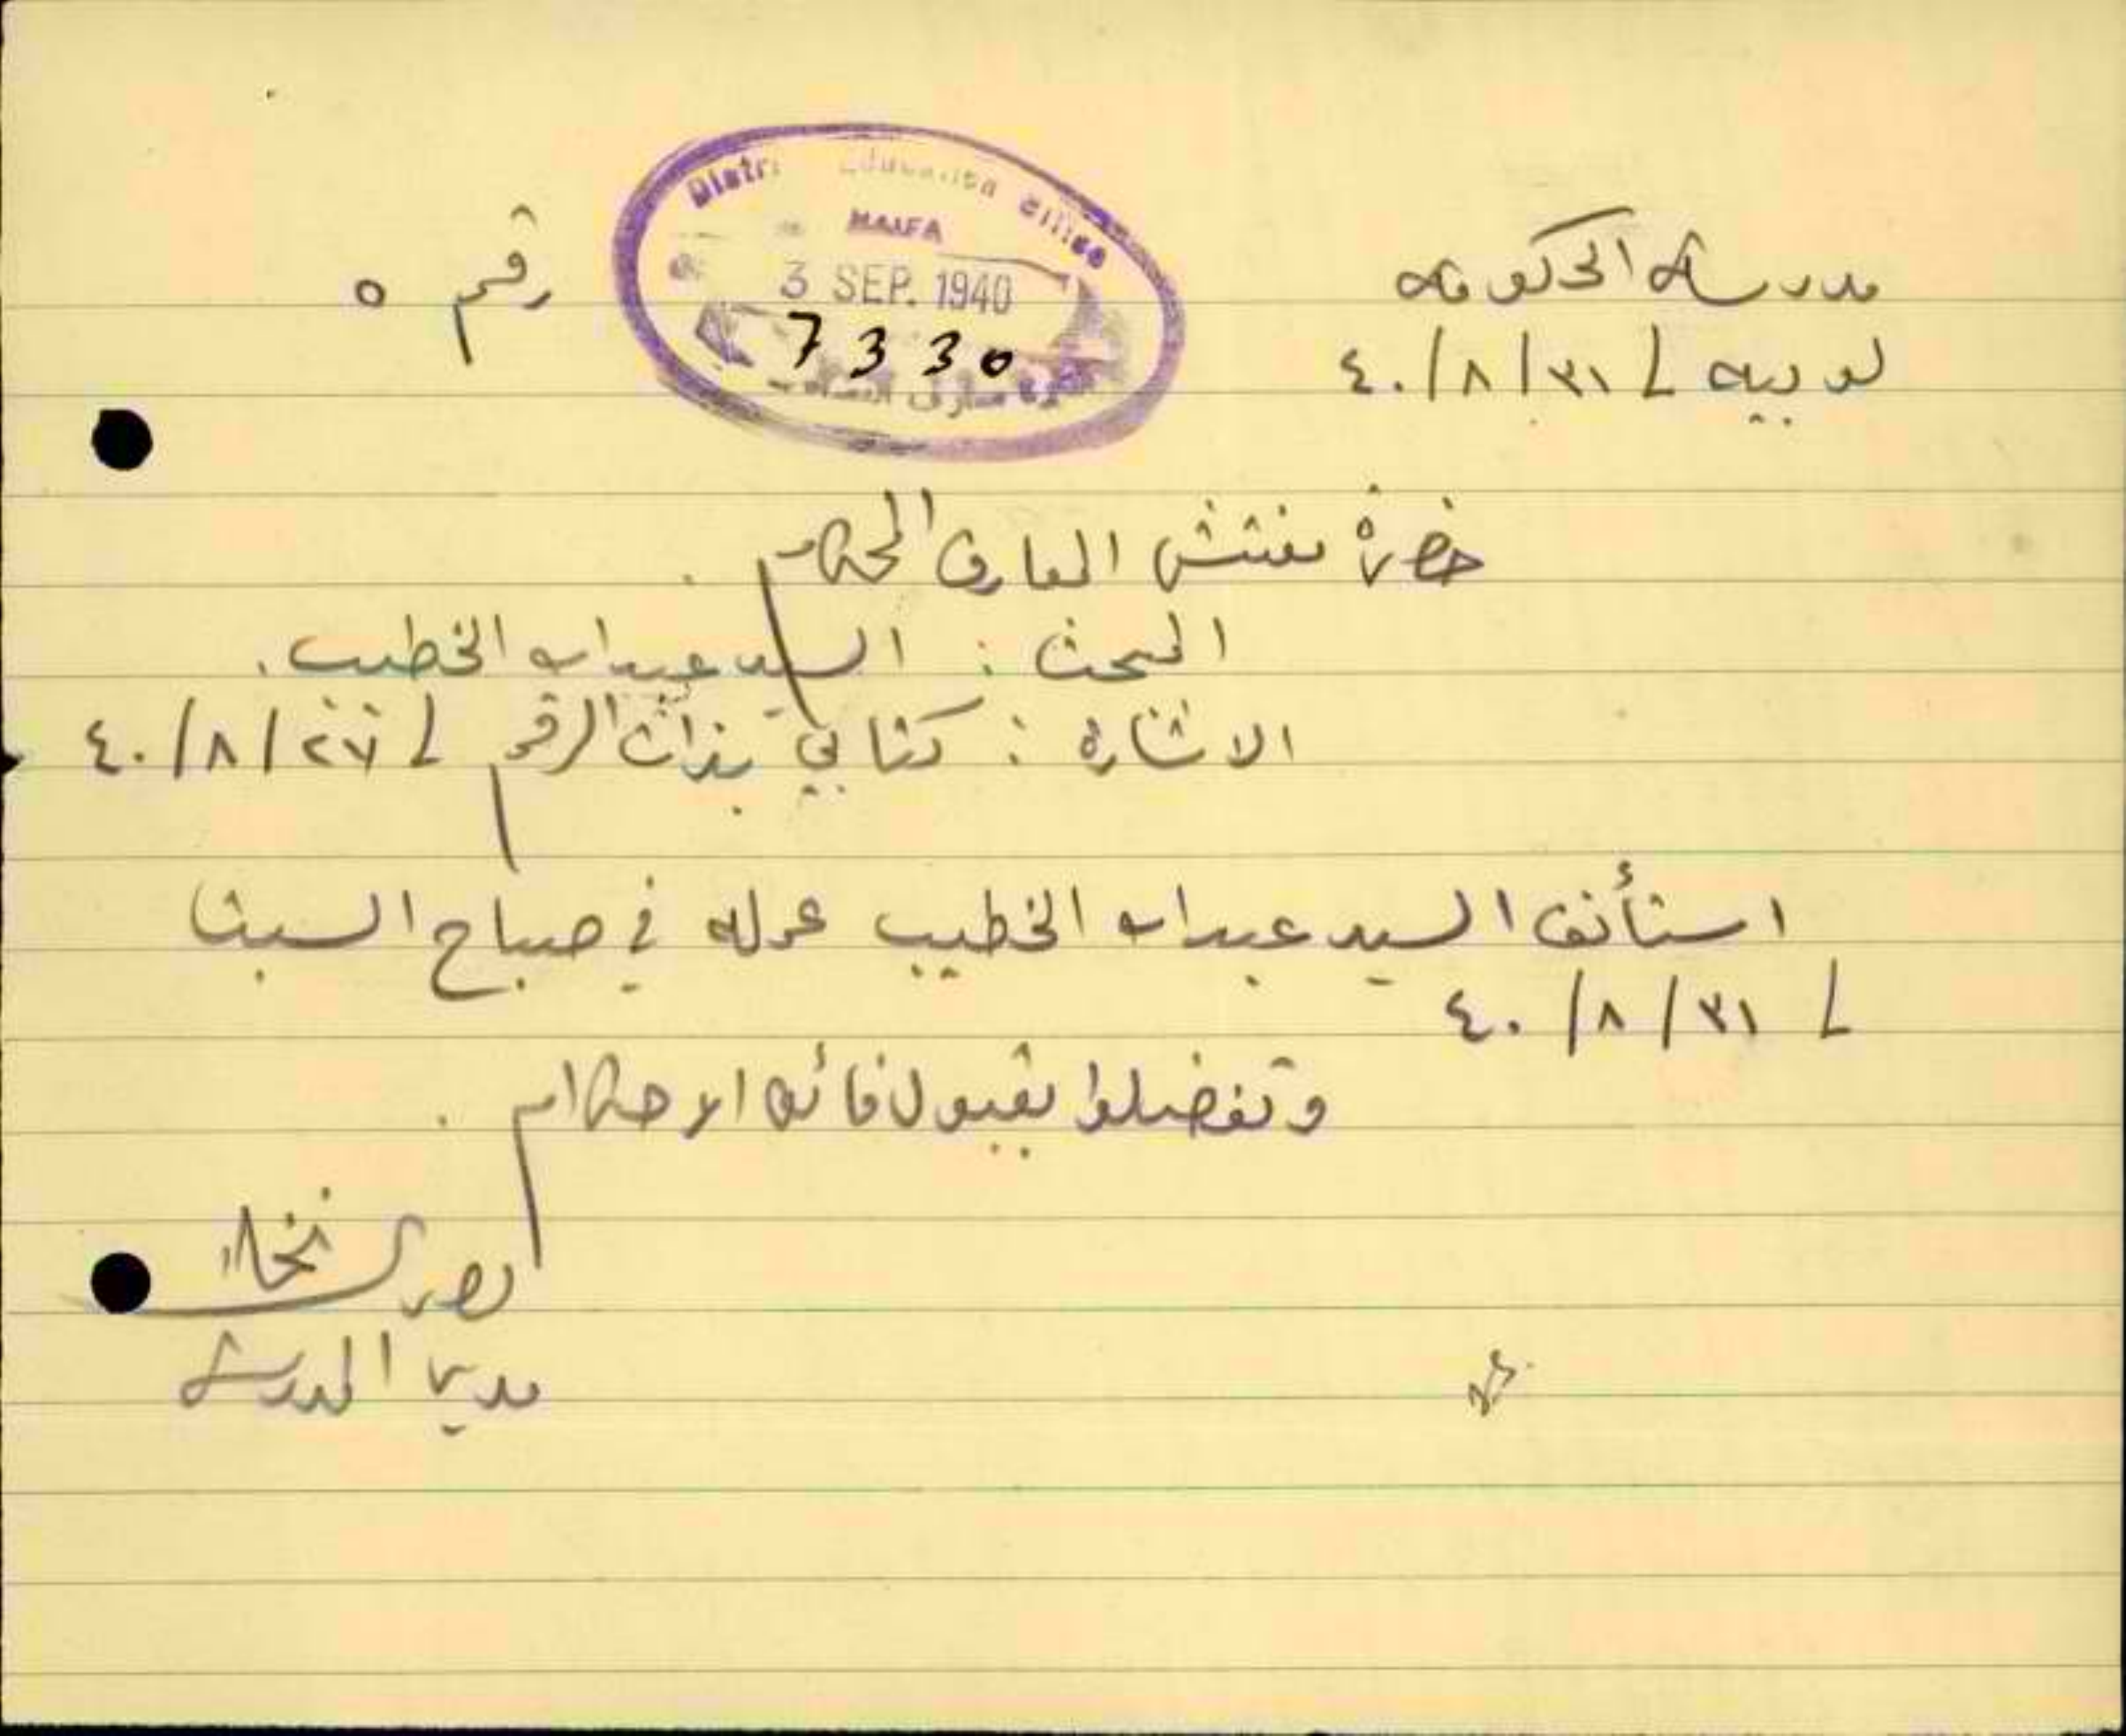 مدرسة الحكومة
لوبيه في ٣١/٨/٤٠
رقم ٥
Education Office
HAIFA
3 SEP. 1940
7330
حضرة مفتش المعارف المحترم.
المبحث: السيد عبدالله الخطيب.
الاشارة: كتابي بذات الرقم في ٢٧/٨/٤٠
استأنف السيد عبدالله الخطيب عمله في صباح السبت
في ٣١/٨/٤٠
وتفضلوا بقبول فائق الاحترام.
مدير المدرسة